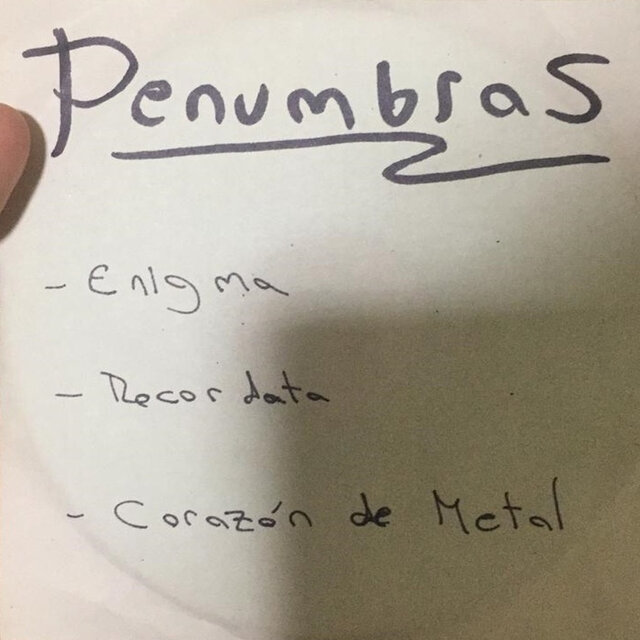 Penumbras
- Enigma
- Recordata
- Corazón de Metal